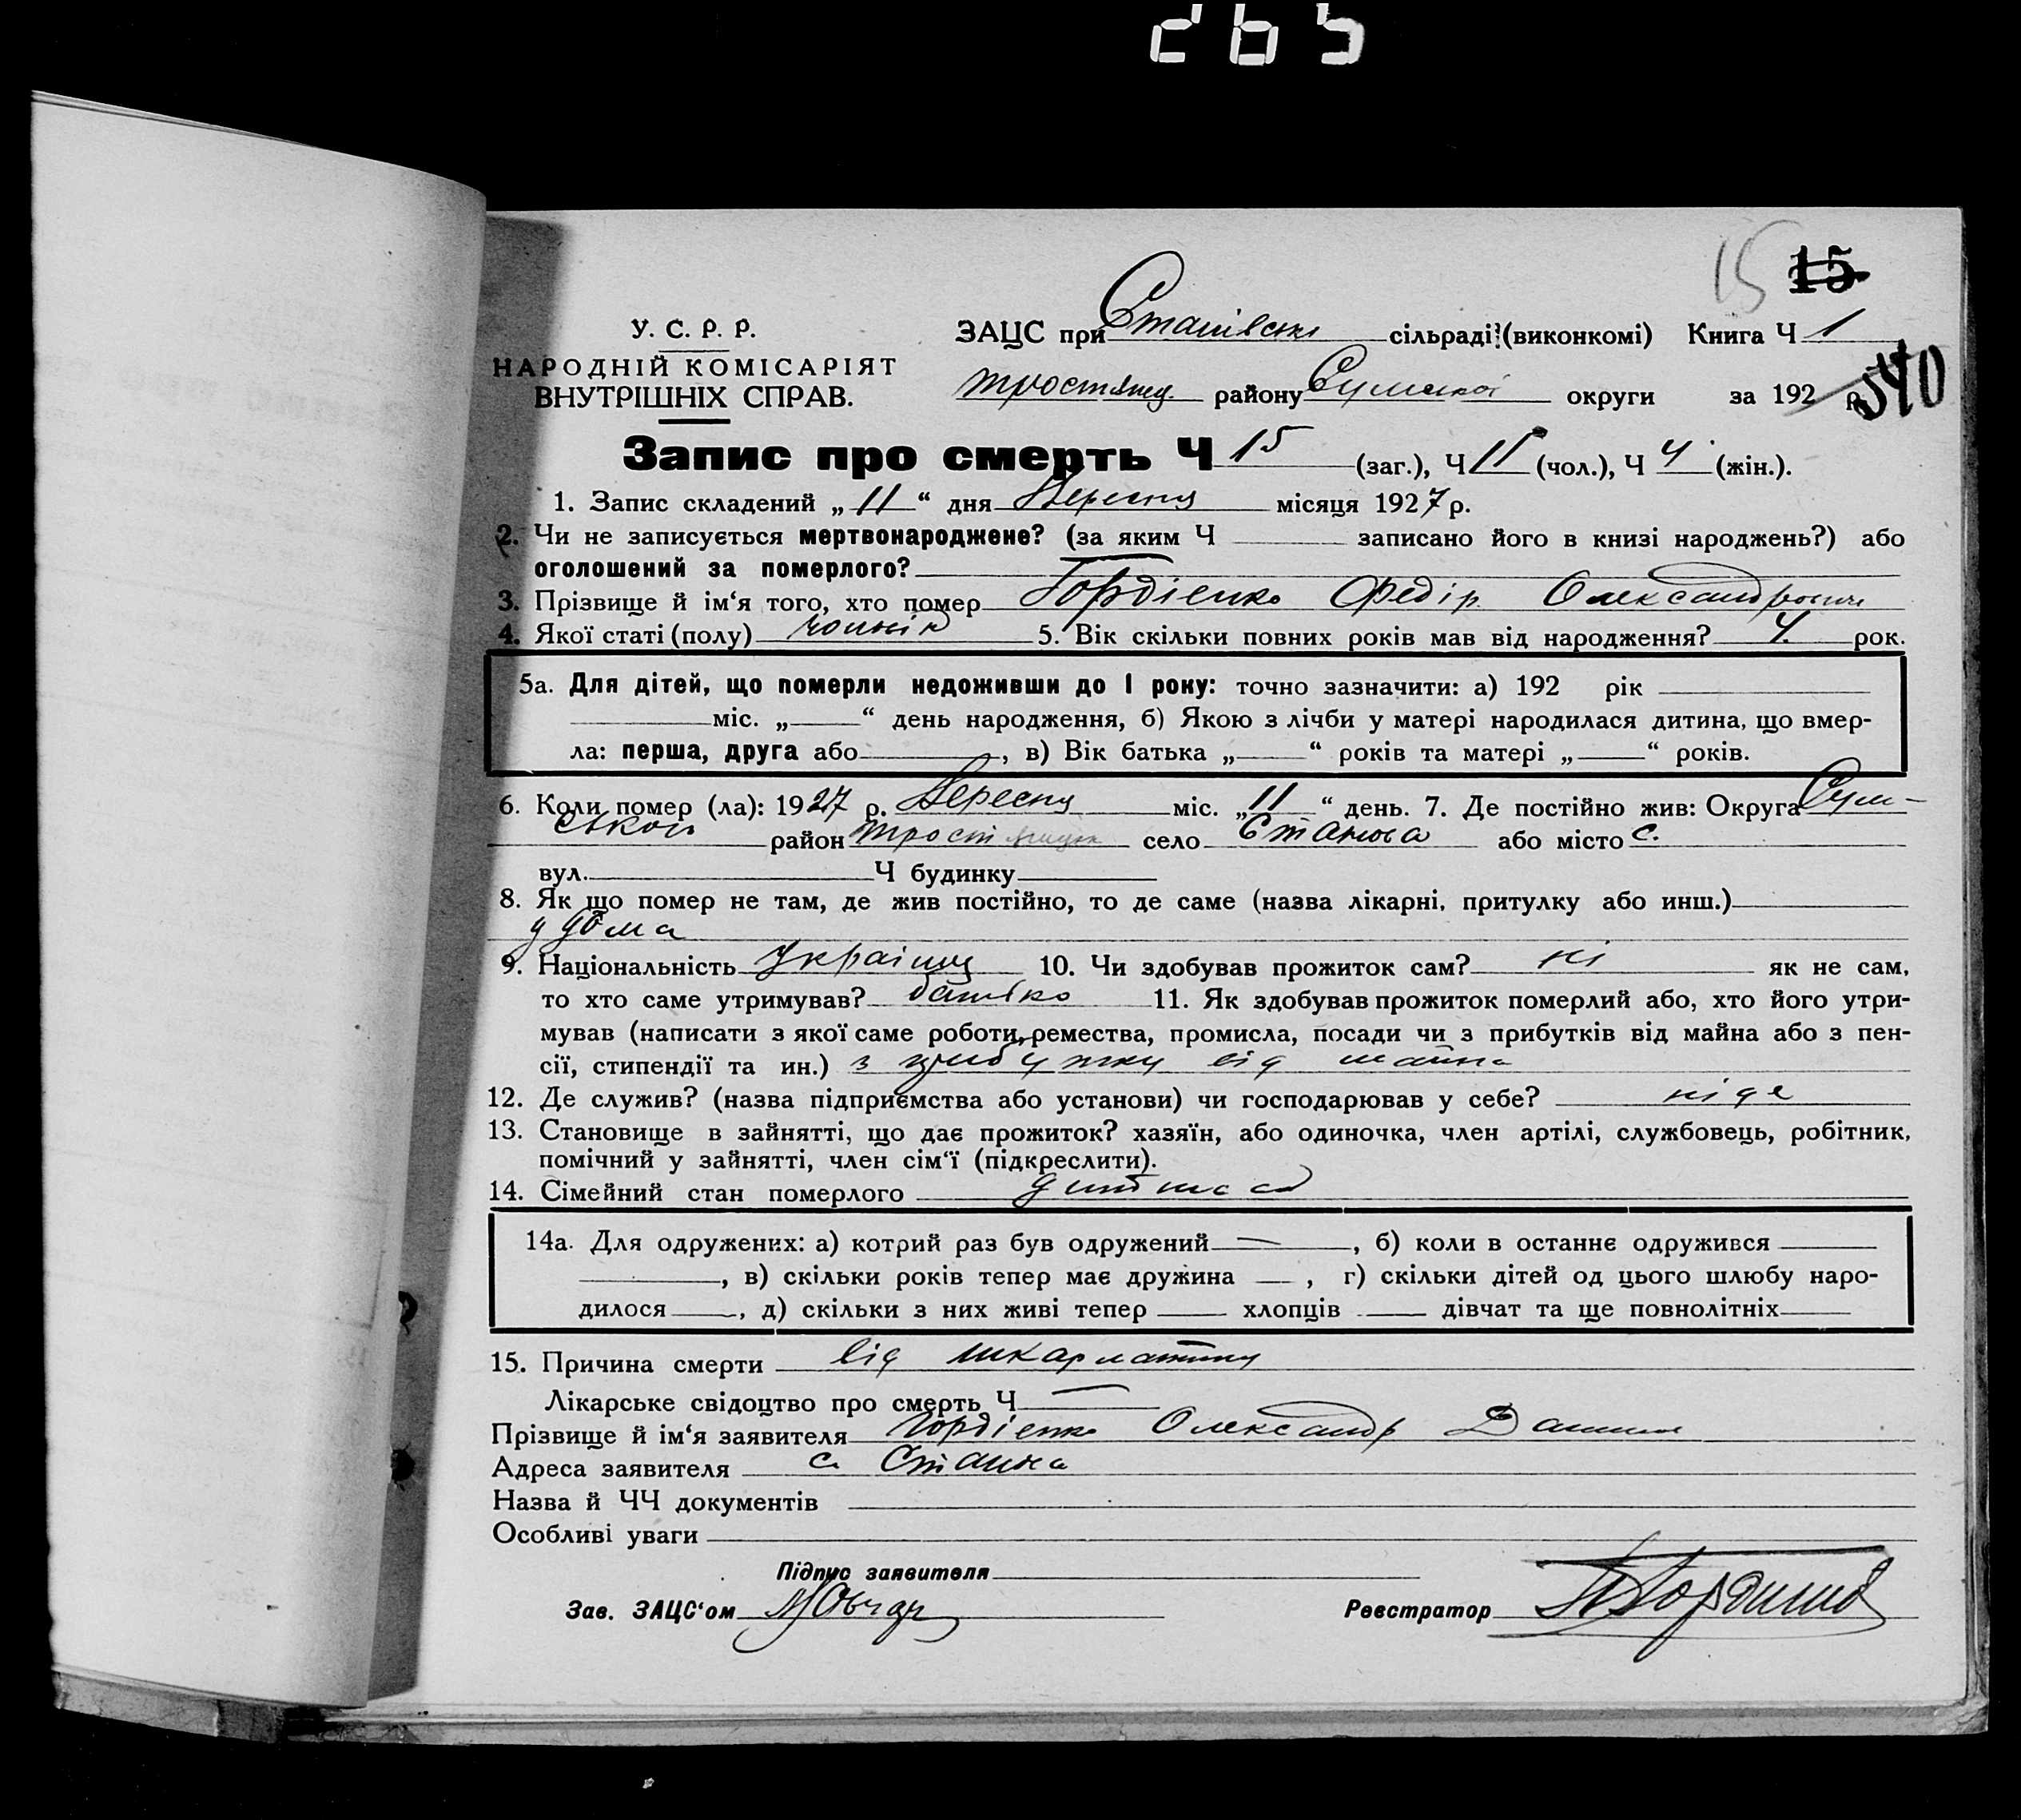 265
15 15
У. С. Р. Р.
НАРОДНІЙ КОМІСАРІЯТ
ВНУТРІШНІХ СПРАВ.
ЗАЦС при сільраді (виконкомі) Книга Ч 1
Тростянец. району Сумської округи за 192 р. 540
Запис про смерть Ч 15 (заг.), Ч 11 (чол.), Ч 4 (жін.).
1. Запис складений „11“ дня Вересня місяця 1927 р.
2. Чи не записується мертвонароджене? (за яким Ч записано його в книзі народжень?) або
оголошений за померлого?
3. Прізвище й ім‘я того, хто помер Гордієнко Федір Олександрович
4. Якої статі (полу) чоловік 5. Вік скільки повних років мав від народження? 4 рок.
5а. Для дітей, що померли недоживши до І року: точно зазначити: а) 192 рік
міс. „ “ день народження, б) Якою з лічби у матері народилася дитина, що вмер-
ла: перша, друга або , в) Вік батька „ “ років та матері „ “ років.
6. Коли помер (ла): 1927 р. Вересня міс. „11“ день. 7. Де постійно жив: Округа Сум-
ської район Тростянецьк село Станова або місто с.
вул. Ч будинку
8. Як що помер не там, де жив постійно, то де саме (назва лікарні, притулку або инш.)
у дома
9. Національність Українц 10. Чи здобував прожиток сам? ні як не сам,
то хто саме утримував? батько 11. Як здобував прожиток померлий або, хто його утри-
мував (написати з якої саме роботи, ремества, промисла, посади чи з прибутків від майна або з пен-
сії, стипендії та ин.) з прибутку від майна
12. Де служив? (назва підприємства або установи) чи господарював у себе? ніде
13. Становище в зайнятті, що дає прожиток? хазяїн, або одиночка, член артілі, службовець, робітник,
помічний у зайнятті, член сім‘ї (підкреслити).
14. Сімейний стан померлого
14а. Для одружених: а) котрий раз був одружений — , б) коли в останнє одружився
, в) скільки років тепер має дружина , г) скільки дітей од цього шлюбу наро-
дилося , д) скільки з них живі тепер хлопців дівчат та ще повнолітніх
15. Причина смерти від шкарлатини
Лікарське свідоцтво про смерть Ч —
Прізвище й ім‘я заявителя Гордієнко Олександр
Адреса заявителя с. Станова
Назва й ЧЧ документів
Особливі уваги
Підпис заявителя
Зав. ЗАЦС‘ом Реєстратор